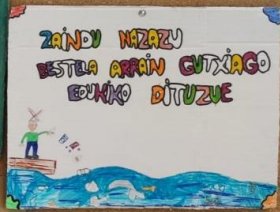 ZAINDU NAZAZU
BESTELA ARRAIN GUTXIAGO
EDUKIKO DITUZUE